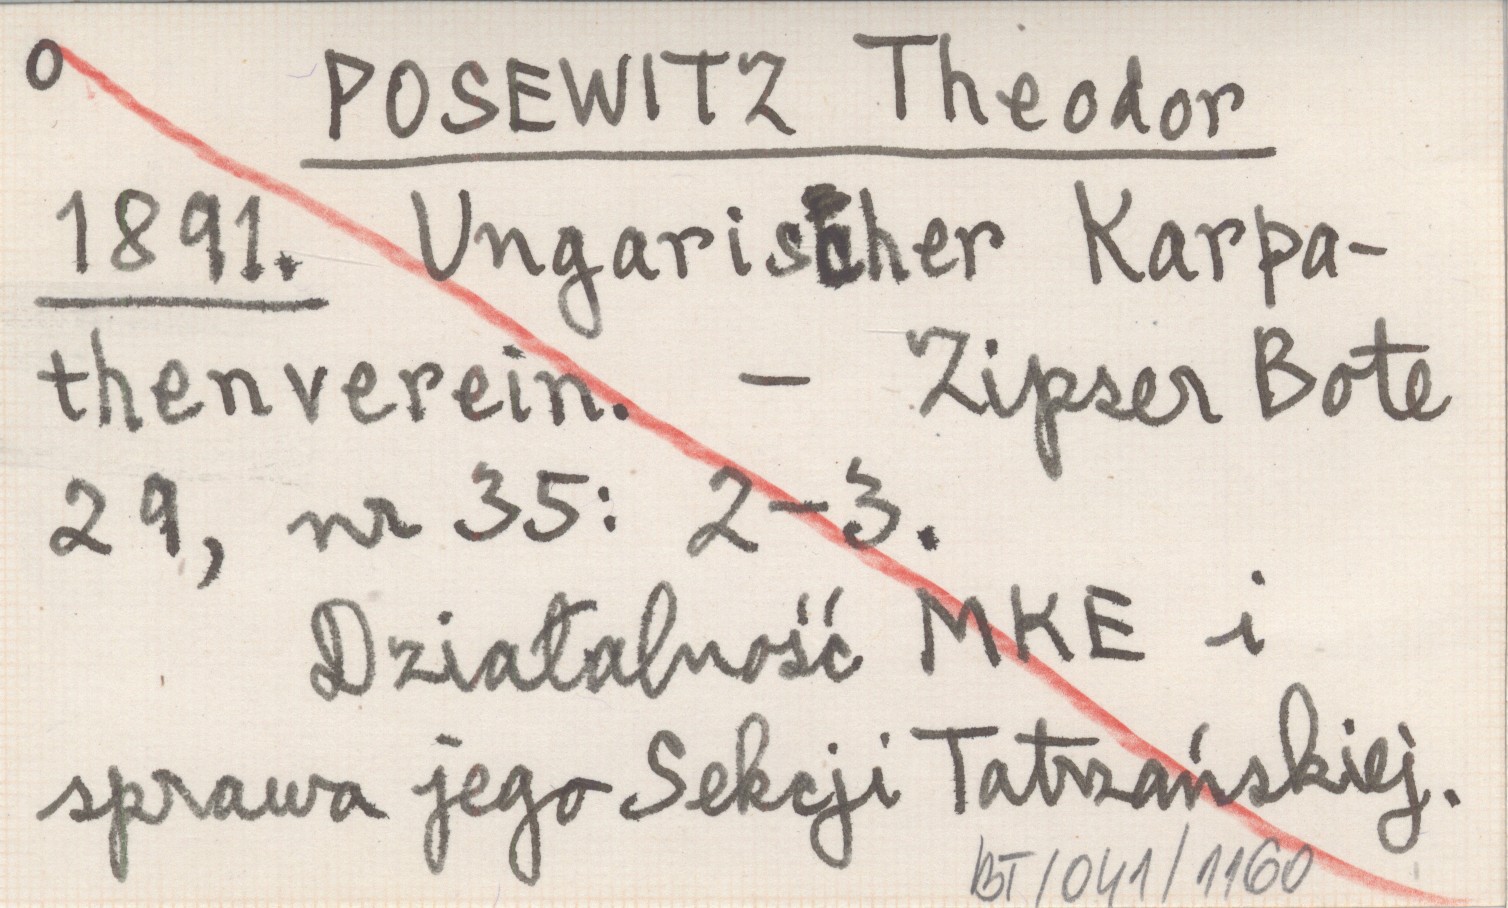 O POSEWITZ Theodor
1891. Ungarischer Karpa-
thenverein. – Zipser Bote
29, nr 35: 2–3.
Działalność MKE i
sprawa jego Sekcji Tatrzańskiej.
BT/041/1160